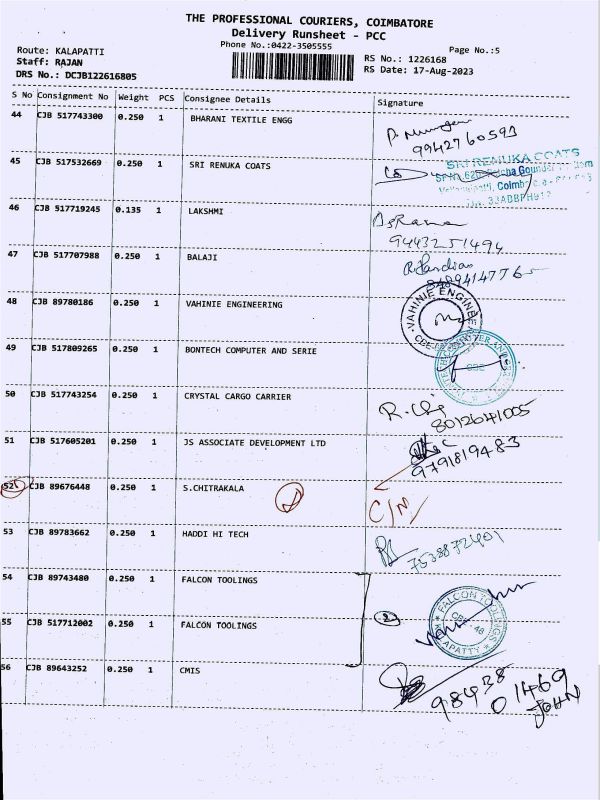 THE PROFESSIONAL COURIERS, COIMBATORE
Delivery Runsheet - PCC
Phone No.:0422-3505555
Page No.:5
Route: KALAPATTI
Staff: RAJAN
DRS No.: DCJB122616805
RS No.: 1226168
RS Date: 17-Aug-2023
S No Consignment No Weight PCS Consignee Details Signature
44 CJB 517743300 0.250 1 BHARANI TEXTILE ENGG
9942760591
45 CJB 517532669 0.250 1 SRI RENUKA COATS
SRI RENUKA COATS
46 CJB 517719245 0.135 1 LAKSHMI
9443251494
47 CJB 517707988 0.250 1 BALAJI
R. Pandian
48 CJB 89780186 0.250 1 VAHINIE ENGINEERING
VAHINIE ENGINEE
49 CJB 517809265 0.250 1 BONTECH COMPUTER AND SERIE
CBE
50 CJB 517743254 0.250 1 CRYSTAL CARGO CARRIER
8012641005
51 CJB 517605201 0.250 1 JS ASSOCIATE DEVELOPMENT LTD
9791819483
52 CJB 89676448 0.250 1 S.CHITRAKALA
C/M
53 CJB 89783662 0.250 1 HADDI HI TECH
7538872401
54 CJB 89743480 0.250 1 FALCON TOOLINGS
55 CJB 517712002 0.250 1 FALCON TOOLINGS
2
FALCON TOOLINGS
CBE - 48
KALAPATTY
56 CJB 89643252 0.250 1 CMIS
98438
01469
JOHN